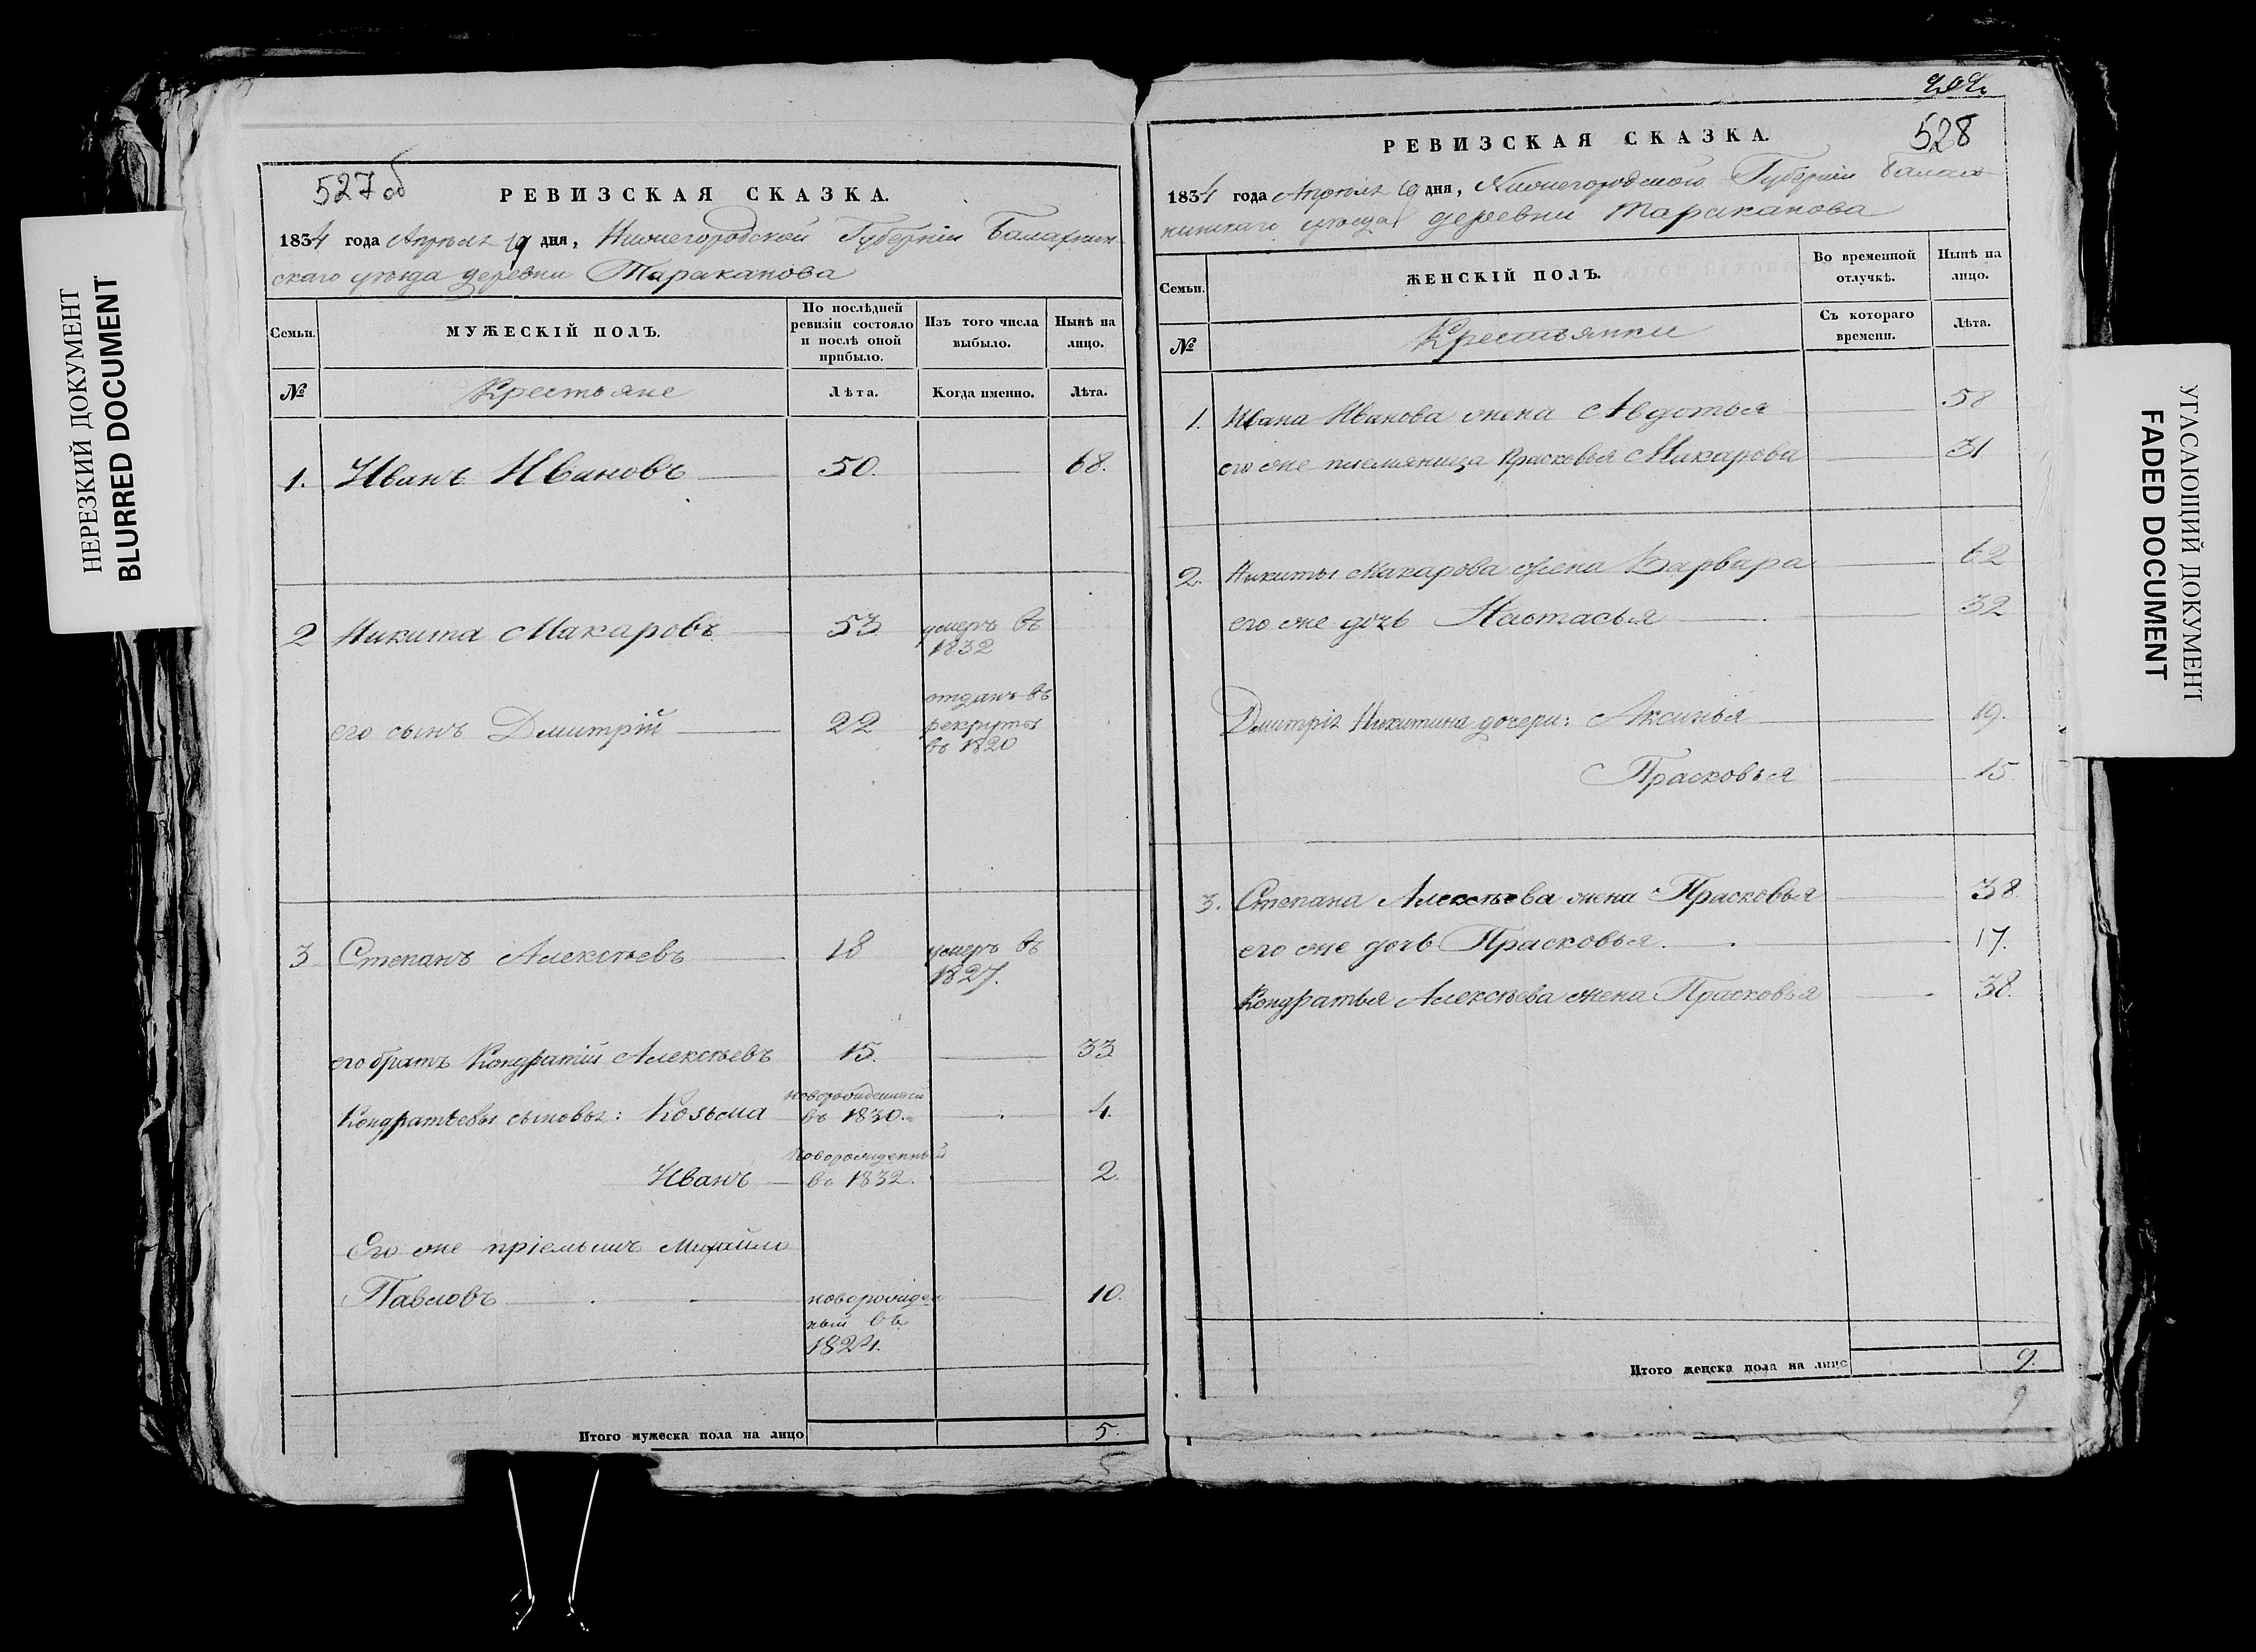 НЕРЕЗКИЙ ДОКУМЕНТ
BLURRED DOCUMENT
527 об
РЕВИЗСКАЯ СКАЗКА.
1834 года Апреля 19 дня, Нижегородской Губерніи Балахнин-
скаго уѣзда деревни Тараканова
Семьи.
МУЖЕСКІЙ ПОЛЪ.
По послѣдней ревизіи состояло и послѣ оной прибыло.
Изъ того числа выбыло.
Нынѣ на лицо.
№
Крестьяне
Лѣта.
Когда именно.
Лѣта.
1. Иванъ Ивановъ 50. 68.
2 Никита Макаровъ 53 умеръ въ
1832
его сынъ Дмитрій 22 отданъ въ
рекруты
въ 1820
3 Степанъ Алексѣевъ 18 умеръ въ
1827.
его братъ Кондратій Алексѣевъ 15. 33
Кондратьевы сыновья: Козьма новорожденный
въ 1830. 4.
Иванъ новорожденный
въ 1832. 2.
Его же пріемышъ Михайло
Павловъ новорожден
ный въ
1824. 10.
Итого мужеска пола на лицо 5.
5
528
РЕВИЗСКАЯ СКАЗКА.
1834 года Апреля 19 дня, Нижегородской Губерніи Балах
нинскаго уѣзда деревни Тараканова
Семьи.
ЖЕНСКІЙ ПОЛЪ.
Во временной отлучкѣ.
Нынѣ на лицо.
№
Крестьянки
Съ котораго времени.
Лѣта.
1. Ивана Иванова жена Авдотья 58
его же племянница Прасковья Макарова 31
2. Никиты Макарова жена Варвара 62
его же дочь Настасья 32
Дмитрія Никитина дочери: Аксинья 19.
Прасковья 15.
3. Степана Алексѣева жена Прасковья 38.
его же дочь Прасковья. 17.
Кондратья Алексѣева жена Прасковья 38.
Итого женска пола на лицо 9.
9
УГАСАЮЩИЙ ДОКУМЕНТ
FADED DOCUMENT